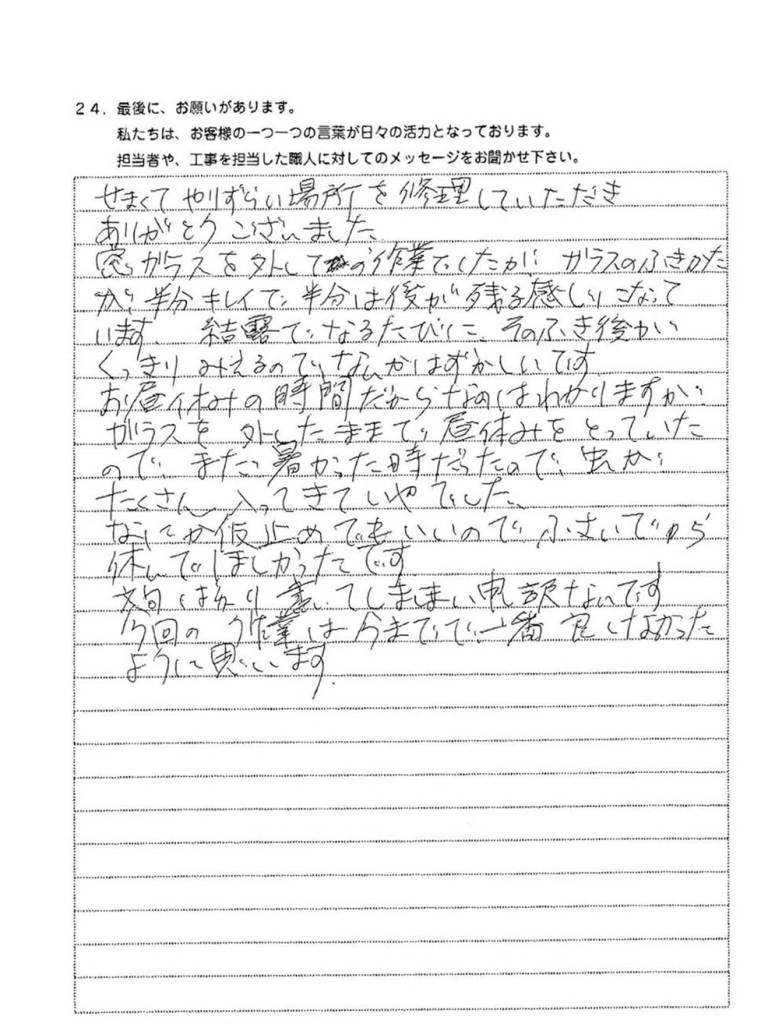 24. 最後に、お願いがあります。
私たちは、お客様の一つ一つの言葉が日々の活力となっております。
担当者や、工事を担当した職人に対してのメッセージをお聞かせ下さい。
せまくてやりずらい場所を修理していただき
ありがとうございました。
窓ガラスを外しての作業でしたが ガラスのふきかた
が、半分キレイで、半分は後が残る感じになって
います。 結露になるたびに、そのふき後が
くっきりみえるので、なんかはずかしいです
お昼休みの時間だからなのはわかりますが
ガラスを外したままで昼休みをとっていた
ので、まだ暑かった時だったので、虫が
たくさん入ってきていやでした。
なにか仮止めでもいいので、ふさいでから
休んでほしかったです
文句ばかり書いてしましまい申訳ないです
今回の作業は今までで一番良くなかった
ように思います.